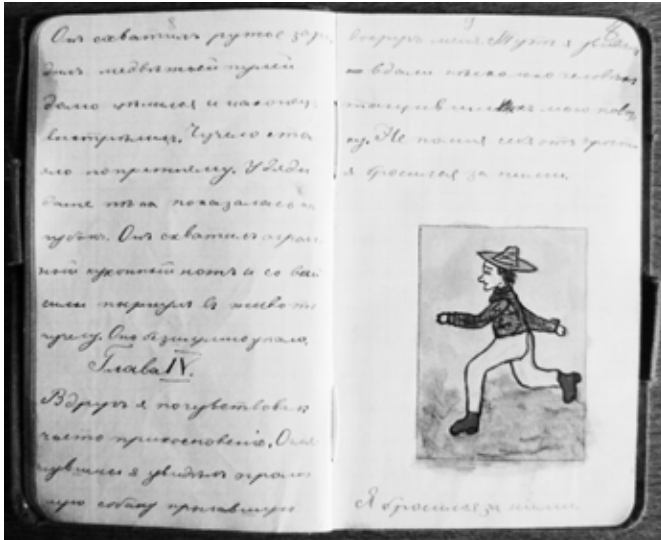 8
Онъ схватилъ ружье заря
дилъ медвѣжьей пулей
долго цѣлился и наконецъ
выстрѣлилъ. Чучело стоя
ло попрежнему. У дяди
даже пѣна показалась на
губахъ. Онъ схватилъ огром
ный кухонный ножъ и со всей
силы пырнулъ въ животъ
чучелу. Оно безшумно упало.
Глава IV.
Вдругъ я почувствовалъ
чьето прикосновенiе. Огля
нувшись я увидѣлъ огром
ную собаку
9
меня. Тутъ я увидѣлъ
вдали нѣсколько человѣкъ
мою
Не помня себя отъ ярости
я бросился за ними.
Я бросился за ними